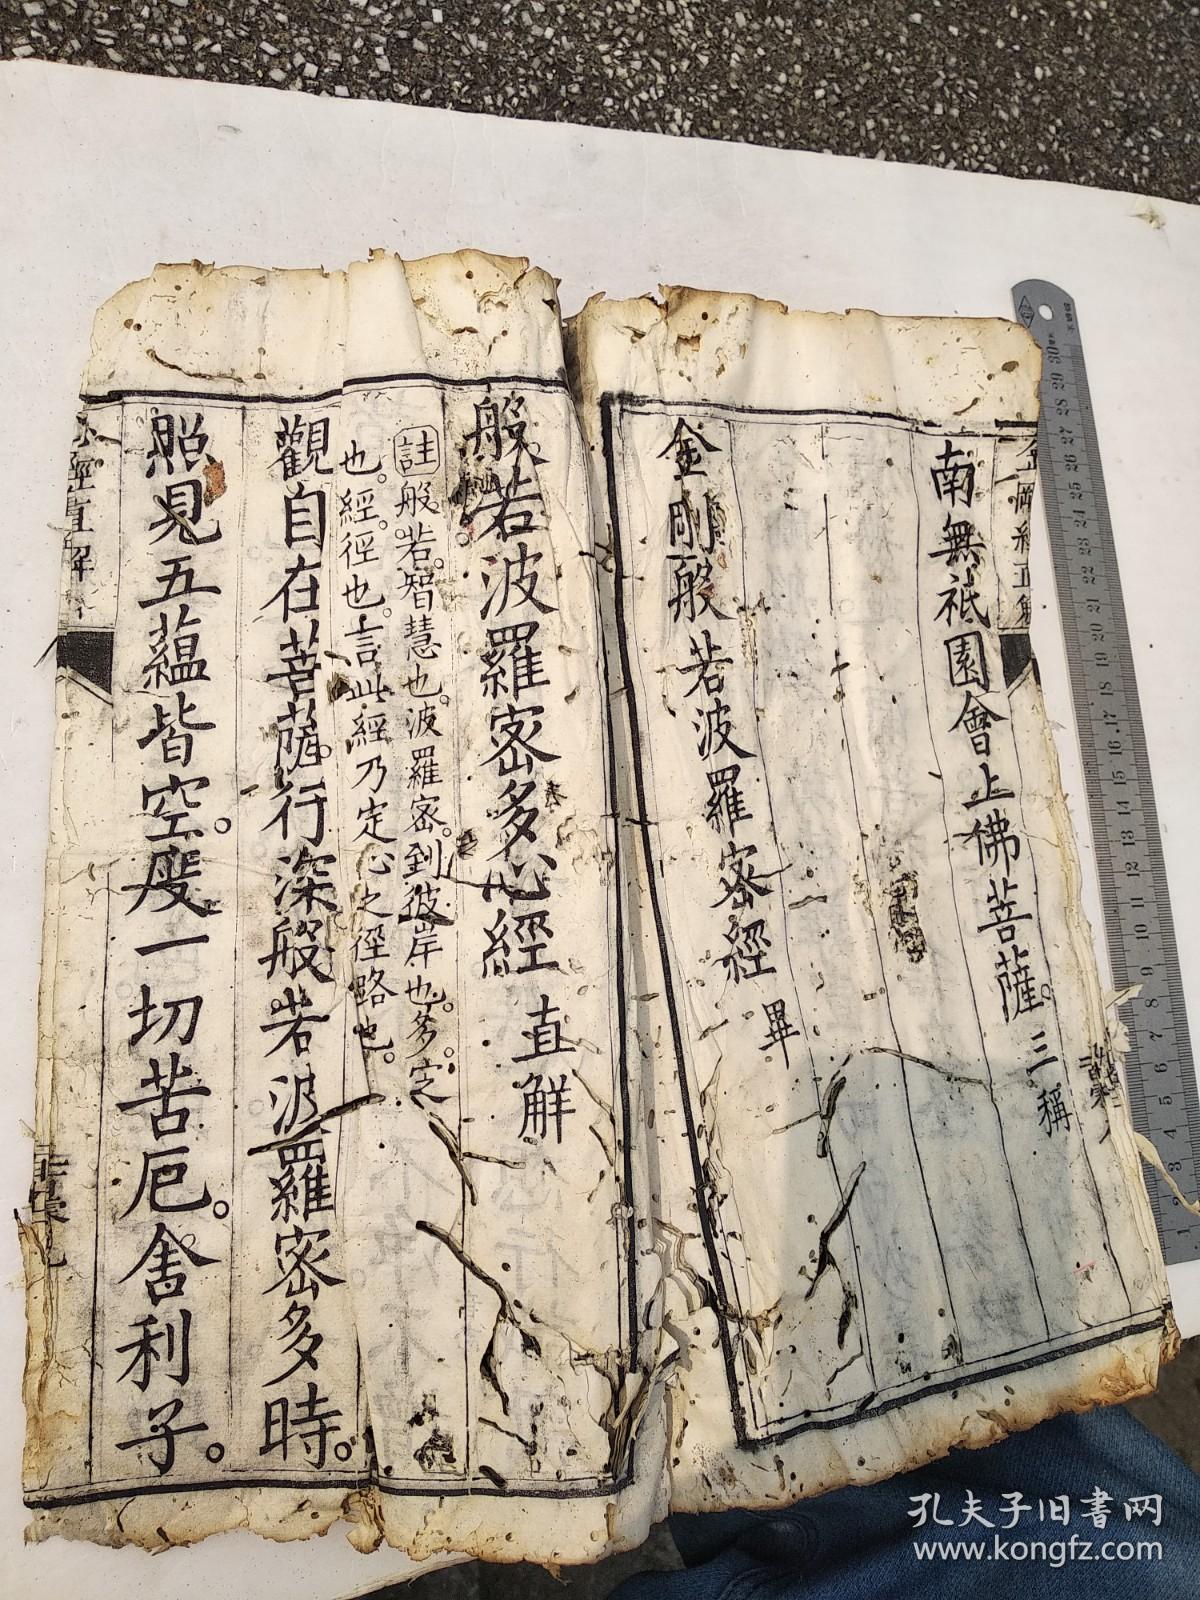 南無祇園會上佛菩薩。三稱
金剛般若波羅密經 畢
般若波羅密多心經 直解
註般若。智慧也。波羅密。到彼岸也。多。定
也。經。徑也。言此經乃定心之徑路也。
觀自在菩薩。行深般若波羅密多時。
照見五蘊皆空。度一切苦厄。舍利子。
心經直解
孔夫子旧書网
www.kongfz.com